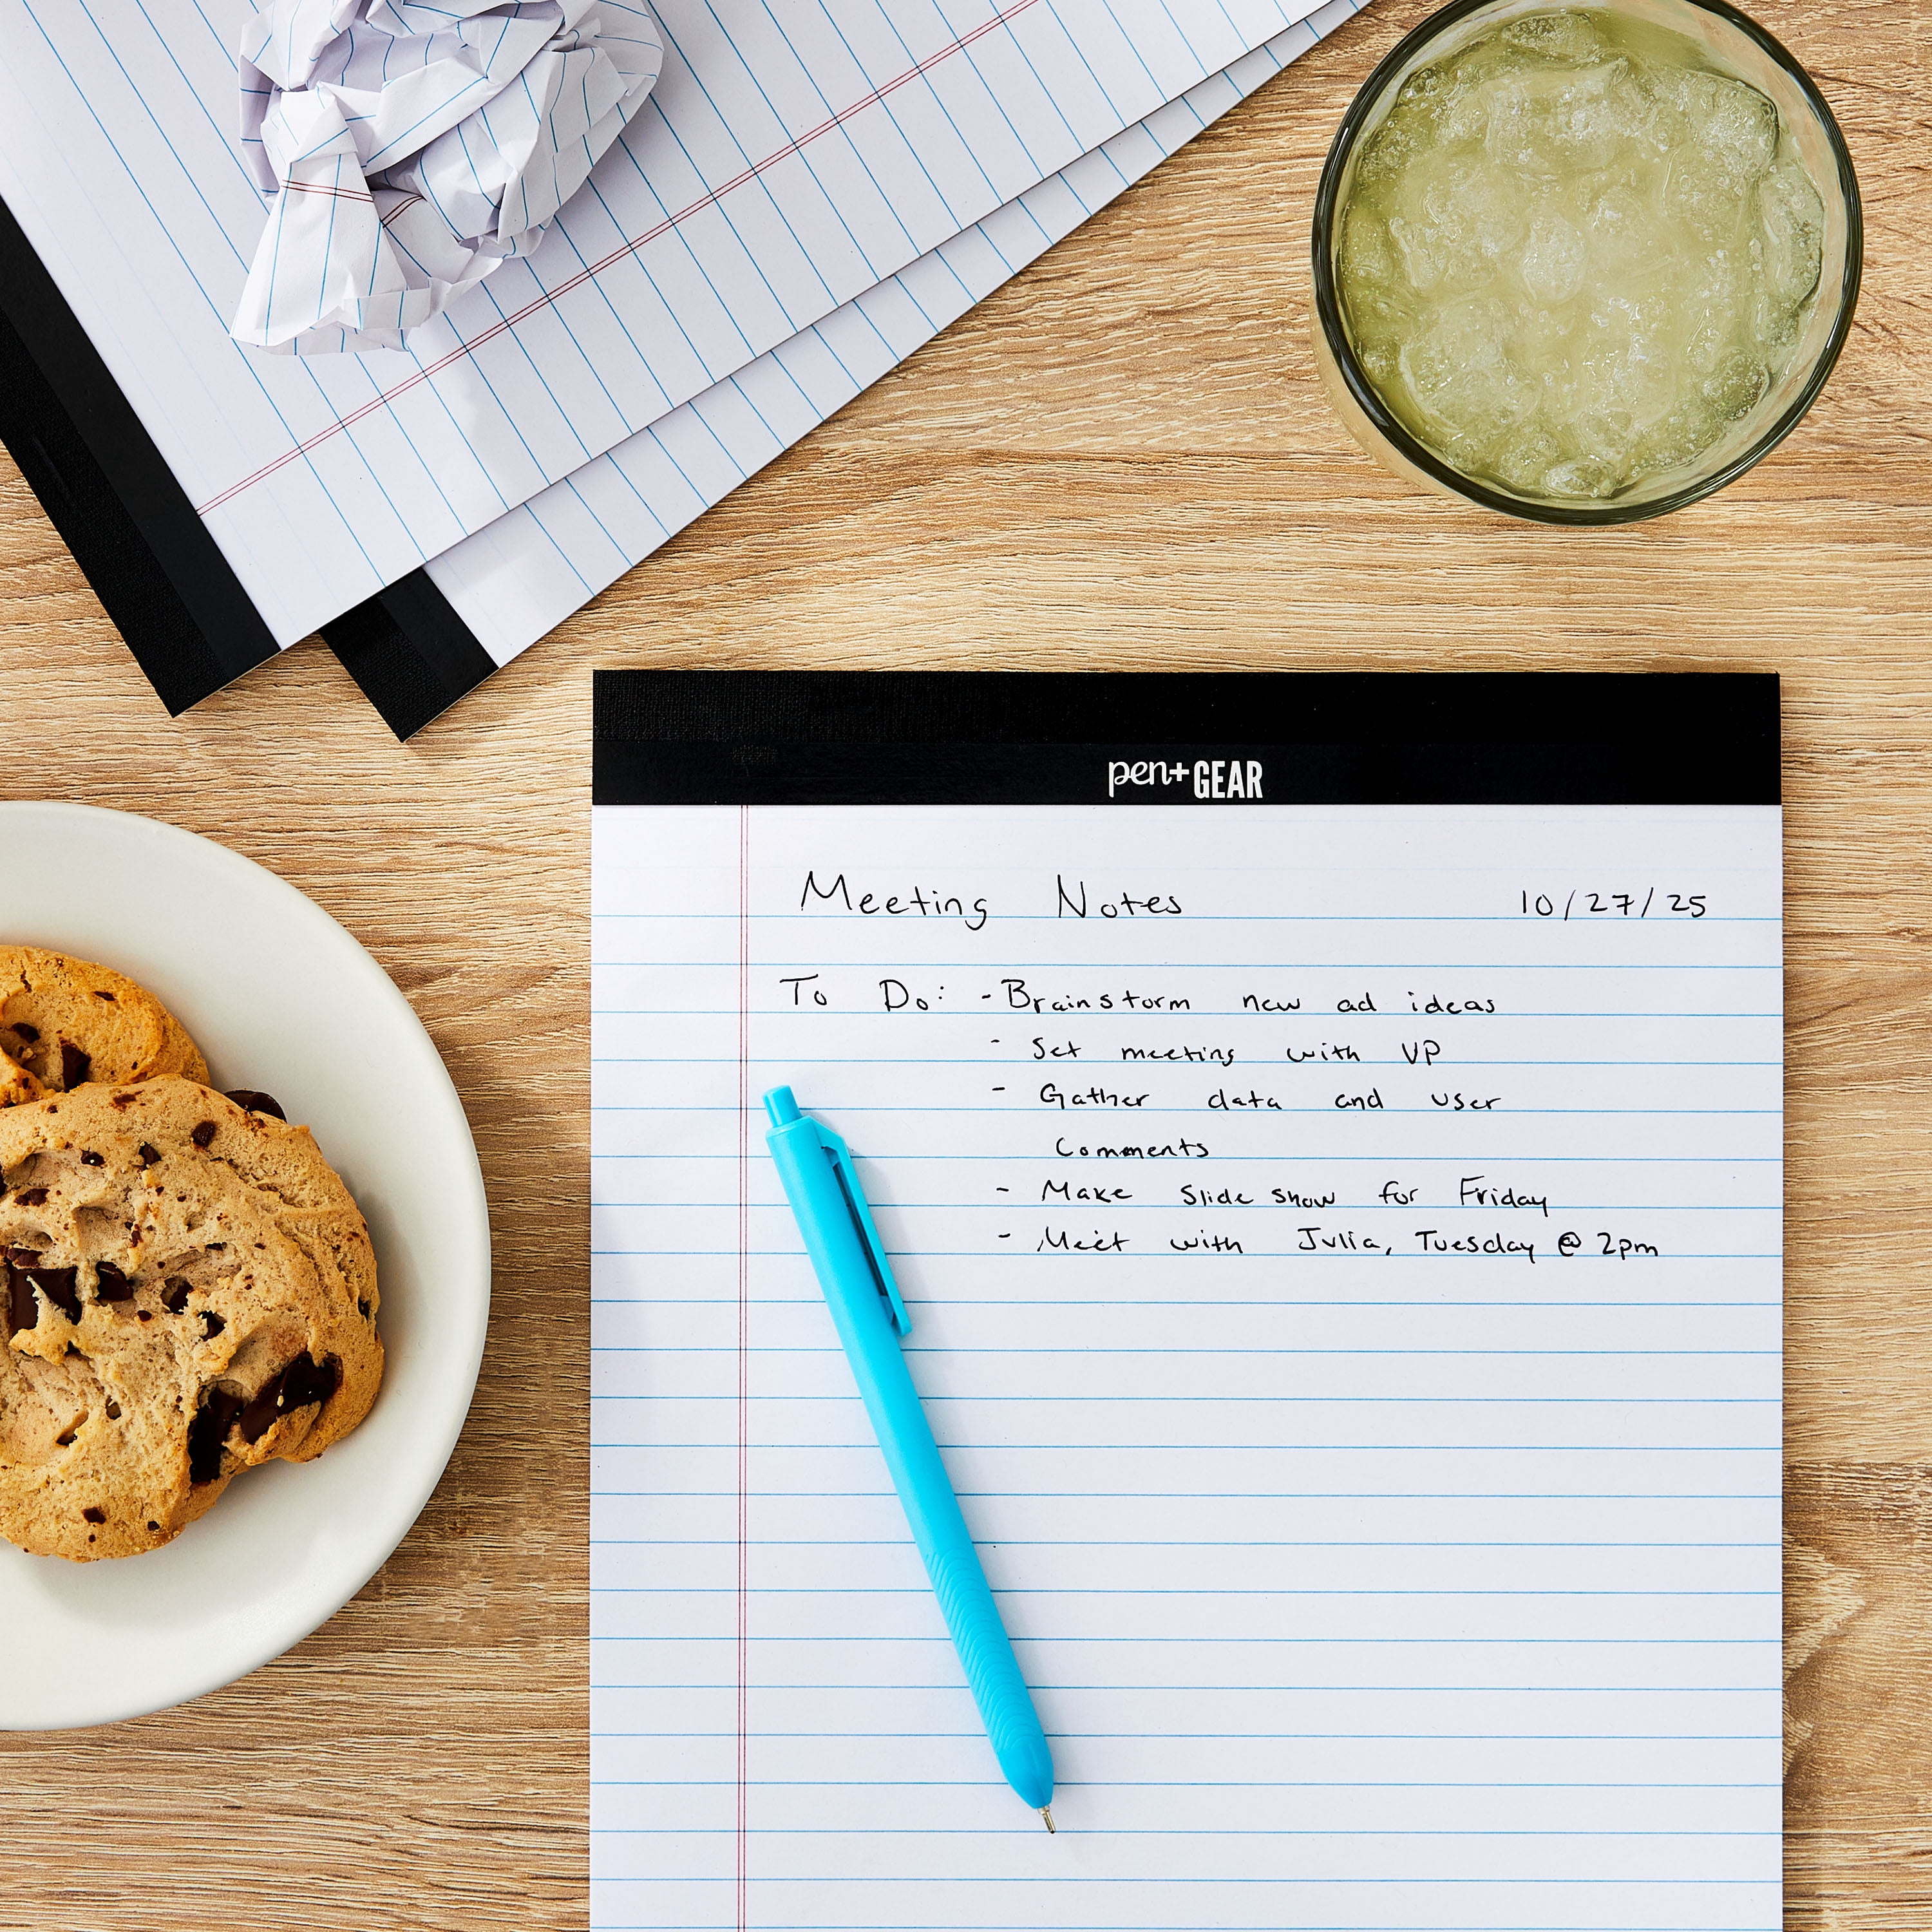 pen+GEAR
Meeting Notes 10/27/25
To Do: - Brainstorm new ad ideas
- Set meeting with VP
- Gather data and user
Comments
- Make Slide show for Friday
- Meet with Julia, Tuesday @ 2pm